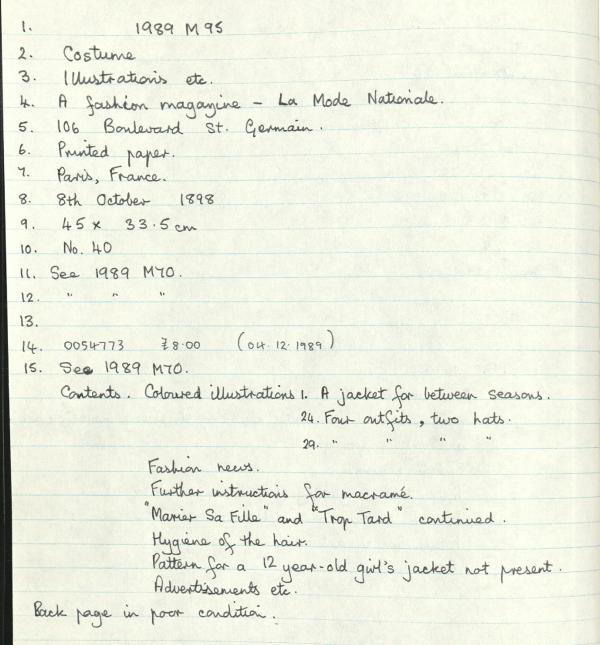 1. 1989 M 95
2. Costume
3. Illustrations etc.
4. A fashion magazine – La Mode Nationale.
5. 106 Boulevard St. Germain.
6. Printed paper.
7. Paris, France.
8. 8th October 1898
9. 45 x 33.5 cm
10. No. 40
11. See 1989 M70.
12. " " "
13.
14. 0054773 £8.00 (04.12.1989)
15. See 1989 M70.
Contents. Coloured illustrations 1. A jacket for between seasons.
24. Four outfits, two hats.
29. " " " "
Fashion news.
Further instructions for macramé.
"Marier Sa Fille" and "Trop Tard" continued.
Hygiene of the hair.
Pattern for a 12 year-old girl's jacket not present.
Advertisements etc.
Back page in poor condition.